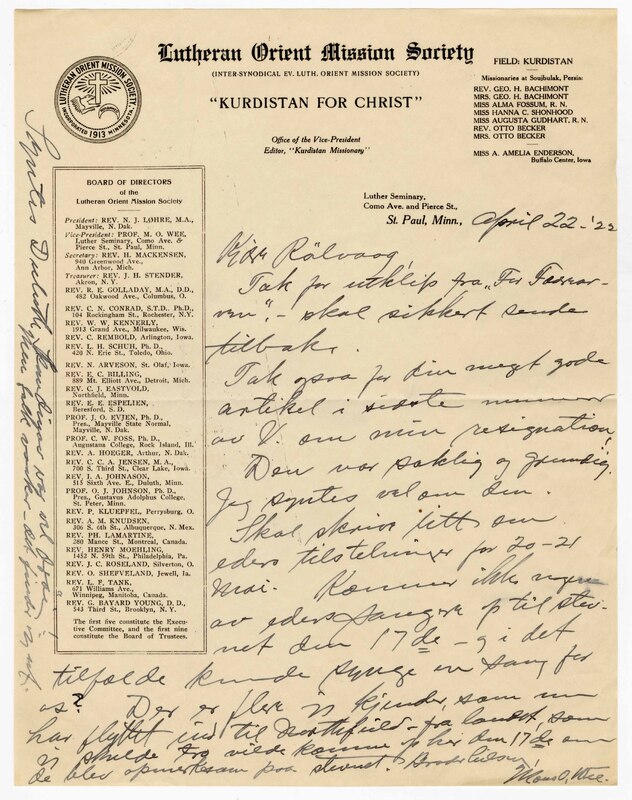 LUTHERAN ORIENT MISSION SOCIETY
INCORPORATED 1913 MINNESOTA
Lutheran Orient Mission Society
(INTER-SYNODICAL EV. LUTH. ORIENT MISSION SOCIETY)
"KURDISTAN FOR CHRIST"
Office of the Vice-President
Editor, "Kurdistan Missionary"
FIELD: KURDISTAN
Missionaries at Soujbulak, Persia:
REV. GEO. H. BACHIMONT
MRS. GEO. H. BACHIMONT
MISS ALMA FOSSUM, R. N.
MISS HANNA C. SHONHOOD
MISS AUGUSTA GUDHART, R. N.
REV. OTTO BECKER
MRS. OTTO BECKER
MISS A. AMELIA ENDERSON,
Buffalo Center, Iowa
BOARD OF DIRECTORS
of the
Lutheran Orient Mission Society
President: REV. N. J. LØHRE, M.A.,
Mayville, N. Dak.
Vice-President: PROF. M. O. WEE,
Luther Seminary, Como Ave. &
Pierce St., St. Paul, Minn.
Secretary: REV. H. MACKENSEN,
940 Greenwood Ave.,
Ann Arbor, Mich.
Treasurer: REV. J. H. STENDER,
Akron, N. Y.
REV. R. E. GOLLADAY, M.A., D.D.,
482 Oakwood Ave., Columbus, O.
REV. C. N. CONRAD, S.T.D., Ph.D.,
104 Rockingham St., Rochester, N.Y.
REV. W. W. KENNERLY,
1913 Grand Ave., Milwaukee, Wis.
REV. C. REMBOLD, Arlington, Iowa.
REV. L. H. SCHUH, Ph. D.,
420 N. Erie St., Toledo, Ohio.
REV. N. ARVESON, St. Olaf, Iowa.
REV. E. C. BILLING,
889 Mt. Elliott Ave., Detroit, Mich.
REV. C. J. EASTVOLD,
Northfield, Minn.
REV. E. E. ESPELIEN,
Beresford, S. D.
PROF. J. O. EVJEN, Ph. D.,
Pres., Mayville State Normal,
Mayville, N. Dak.
PROF. C. W. FOSS, Ph. D.,
Augustana College, Rock Island, Ill.
REV. A. HOEGER, Arthur, N. Dak.
REV. C. C. A. JENSEN, M. A.,
700 S. Third St., Clear Lake, Iowa.
REV. I. A. JOHNASON,
515 Sixth Ave. E., Duluth, Minn.
PROF. O. J. JOHNSON, Ph. D.,
Pres., Gustavus Adolphus College,
St. Peter, Minn.
REV. P. KLUEPFEL, Perrysburg, O.
REV. A. M. KNUDSEN,
306 S. 6th St., Albuquerque, N. Mex.
REV. PH. LAMARTINE,
280 Mance St., Montreal, Canada.
REV. HENRY MOEHLING,
1452 N. 59th St., Philadelphia, Pa.
REV. J. C. ROSELAND, Silverton, O.
REV. O. SHEFVELAND, Jewell, Ia.
REV. L. F. TANK,
671 Williams Ave.,
Winnipeg, Manitoba, Canada.
REV. G. BAYARD YOUNG, D. D.,
543 Third St., Brooklyn, N. Y.
The first five constitute the Executive
Committee, and the first nine
constitute the Board of Trustees.
Luther Seminary,
Como Ave. and Pierce St.,
St. Paul, Minn., April 22-'22
Kjære Rölvaag!
Tak for utklip fra "For Fædrear-
ven". - skal sikkert sende
tilbake.
Tak ogsaa for din meget gode
artikel i sidste nummer
av V. om min resignation!
Den var saklig og grundig
Jeg syntes vel om den.
Skal skrive litt om
eders tilstelninger for 20-21
mai. Kommer ikke
av eders sangere op til stev-
net den 17 de - og i det
tilfælde kunde synge en sang for
os? Der er flere vi kjender, som nu
har flyttet ind til Northfield - fra landet, som
vi skulde tro vilde komme op her den 17 de om
de blev opmerksom paa stevnet. Broderhilsen,
Mons O. Wee.
Syntes Duluth